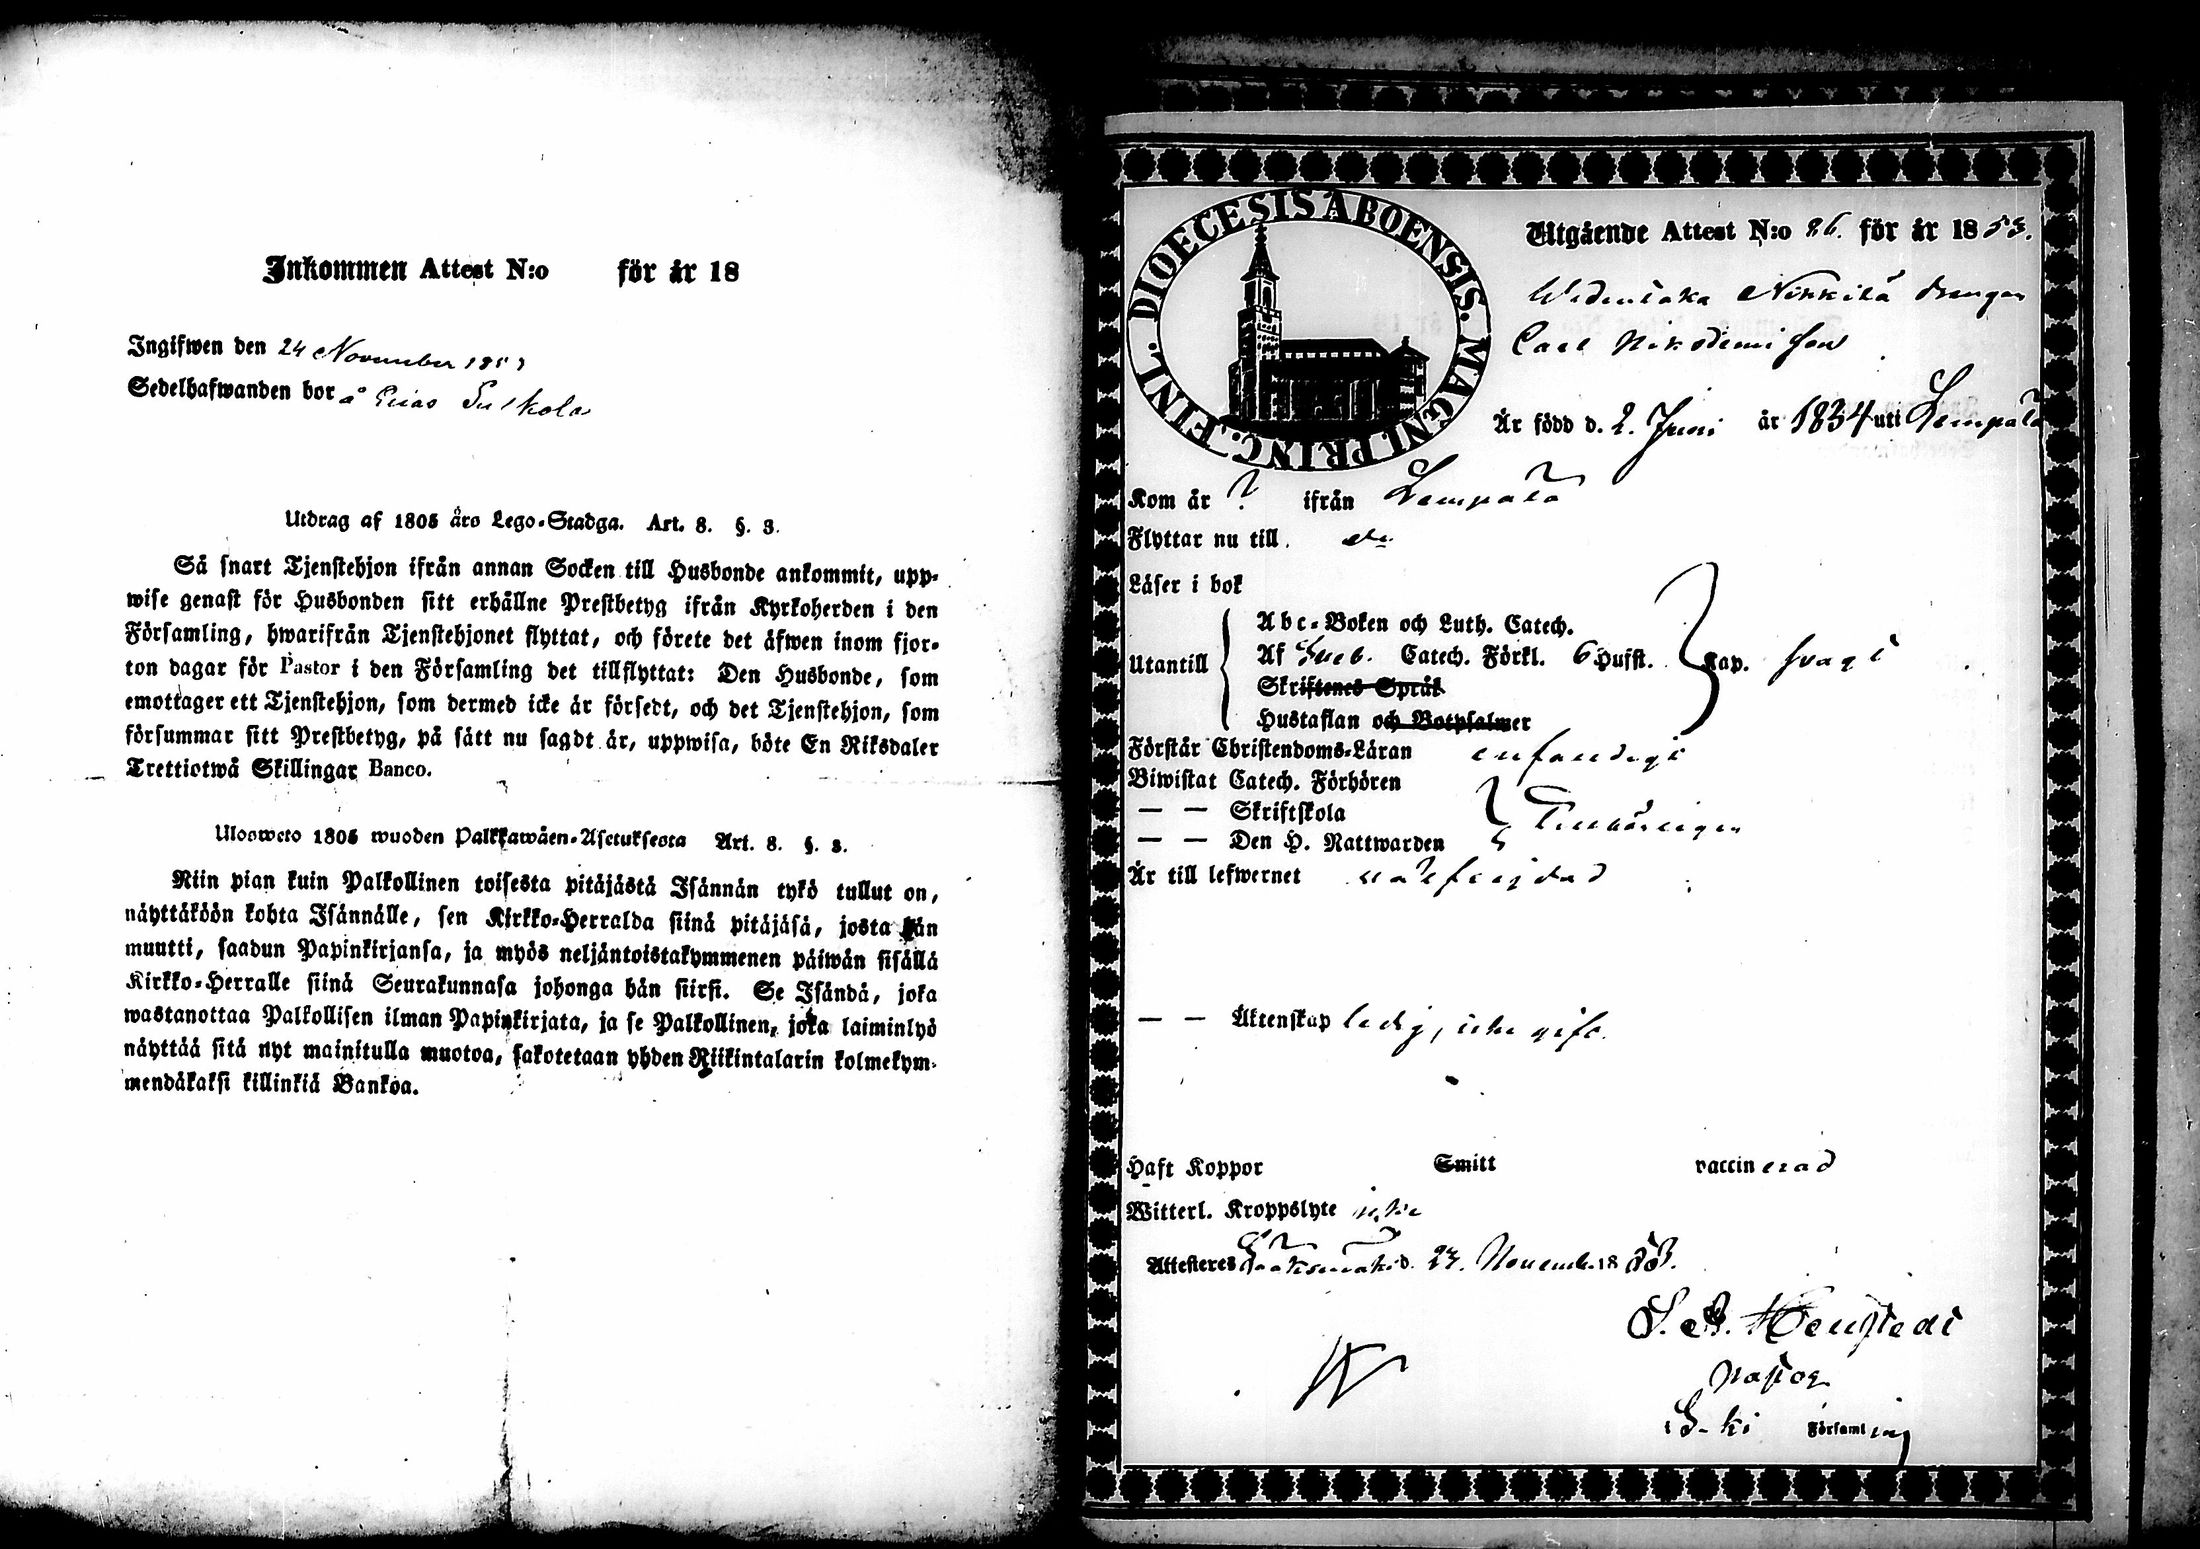 Inkommen Attest N:o för år 18
Ingifwen den 24 November 1853
Sedelhafwanden bor å Erias
Utdrag af 1805 års Lego-Stadga. Art. 8. §. 3.
Så snart Tjenstehjon ifrån annan Socken till Husbonde ankommit, upp-
wise genast för Husbonden sitt erhållne Prestbetyg ifrån Kyrkoherden i den
Församling, hwarifrån Tjenstehjonet flyttat, och förete det äfwen inom fjor-
ton dagar för Pastor i den Församling det tillflyttat: Den Husbonde, som
emottager ett Tjenstehjon, som dermed icke är försedt, och det Tjenstehjon, som
försummar sitt Prestbetyg, på sätt nu sagdt är, uppwisa, böte En Riksdaler
Trettiotwå Skillingar Banco.
Ulosweto 1805 wuoden Palkkawäen-Asetuksesta Art. 8. §. 3.
Niin pian kuin Palkollinen toisesta pitäjästä Isännän tykö tullut on,
näyttäköön kohta Isännälle, sen Kirkko-Herralda siinä pitäjäsä, josta hän
muutti, saadun Papinkirjansa, ja myös neljäntoistakymmenen päiwän sisällä
Kirkko-Herralle siinä Seurakunnasa johonga hän siirsi. Se Isändä, joka
wastanottaa Palkollisen ilman Papinkirjata, ja se Palkollinen, joka laiminlyö
näyttää sitä nyt mainitulla muotoa, sakotetaan yhden Riikintalarin kolmekym-
mendäkaksi killinkiä Bankoa.
DIOECESIS ABOENSIS. MAGNI PRINC. FINL.
Utgående Attest N:o 26. för år 1853.
Nikkilä drengen
Carl Nikodemi son
Är född d. 2. Juni år 1834 uti Lempälä
Kom år ? ifrån Lempälä
Flyttar nu till do
Läser i bok
Utantill
Abc-Boken och Luth. Catech.
Af Sveb. Catech. Förkl. 6 Hufst. Kap. svagt
Skriftenes Språk
Hustaflan och Botpsalmer
Förstår Christendoms-Läran enfaldigt
Biwistat Catech. Förhören
— — Skriftskola
— — Den H. Nattwarden
Tillbörligen
Är till lefwernet välfrejdad
— — Äktenskap ledig, icke gift.
Haft Koppor Smitt vaccinerad
Witterl. Kroppslyte icke
Attesteres Sääksmäki d. 23. Novemb. 1853.
i S-ki Församling